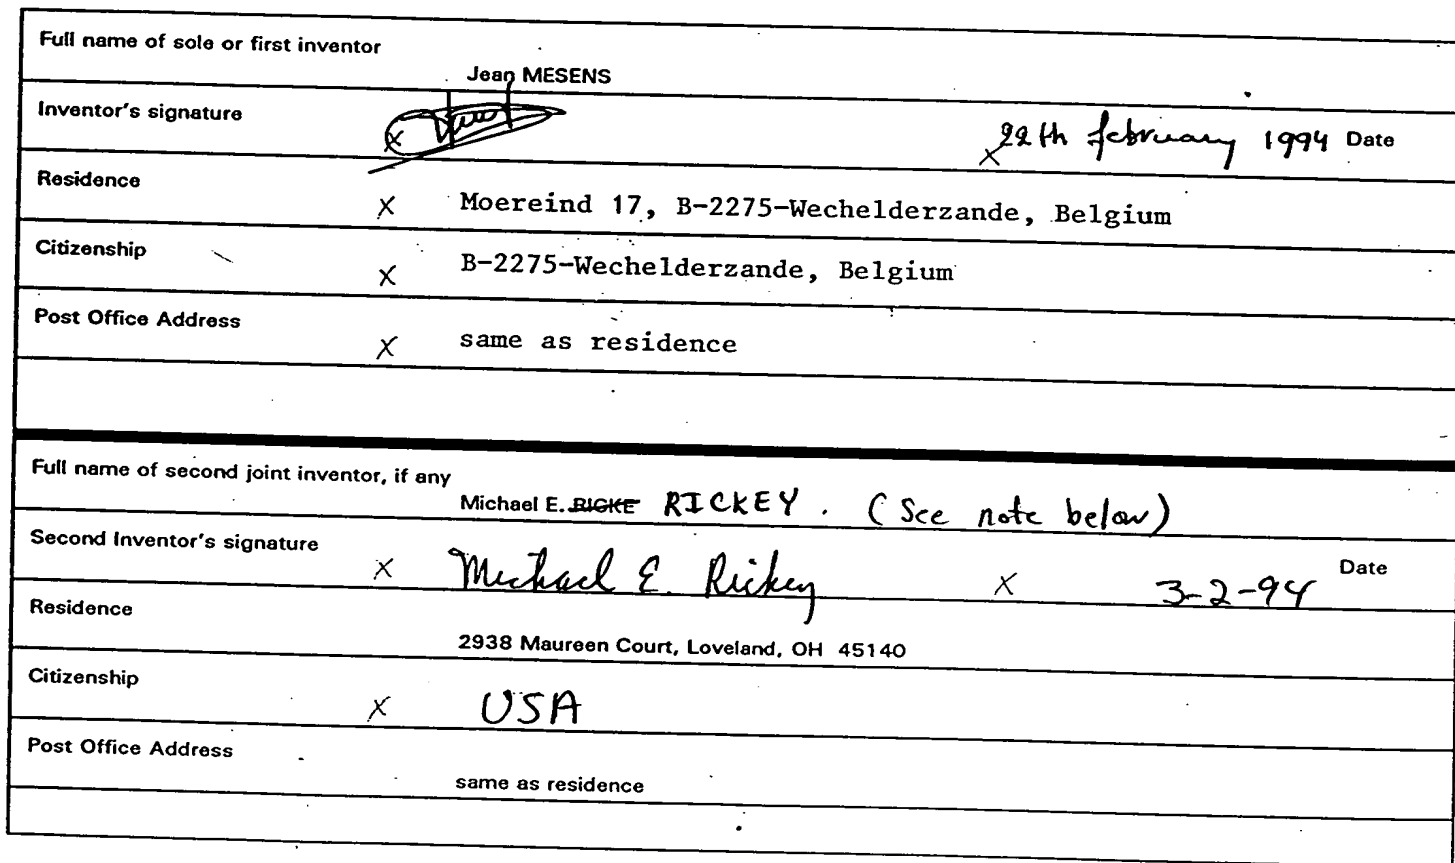 Full name of sole or first inventor
Jean MESENS
Inventor's signature
x 22th february 1994 Date
Residence x Moereind 17, B-2275-Wechelderzande, Belgium
Citizenship x B-2275-Wechelderzande, Belgium
Post Office Address x same as residence
Full name of second joint inventor, if any
Michael E. RICKE RICKEY. (See note below)
Second Inventor's signature x Michael E. Rickey x 3-2-94 Date
Residence
2938 Maureen Court, Loveland, OH 45140
Citizenship x USA
Post Office Address
same as residence